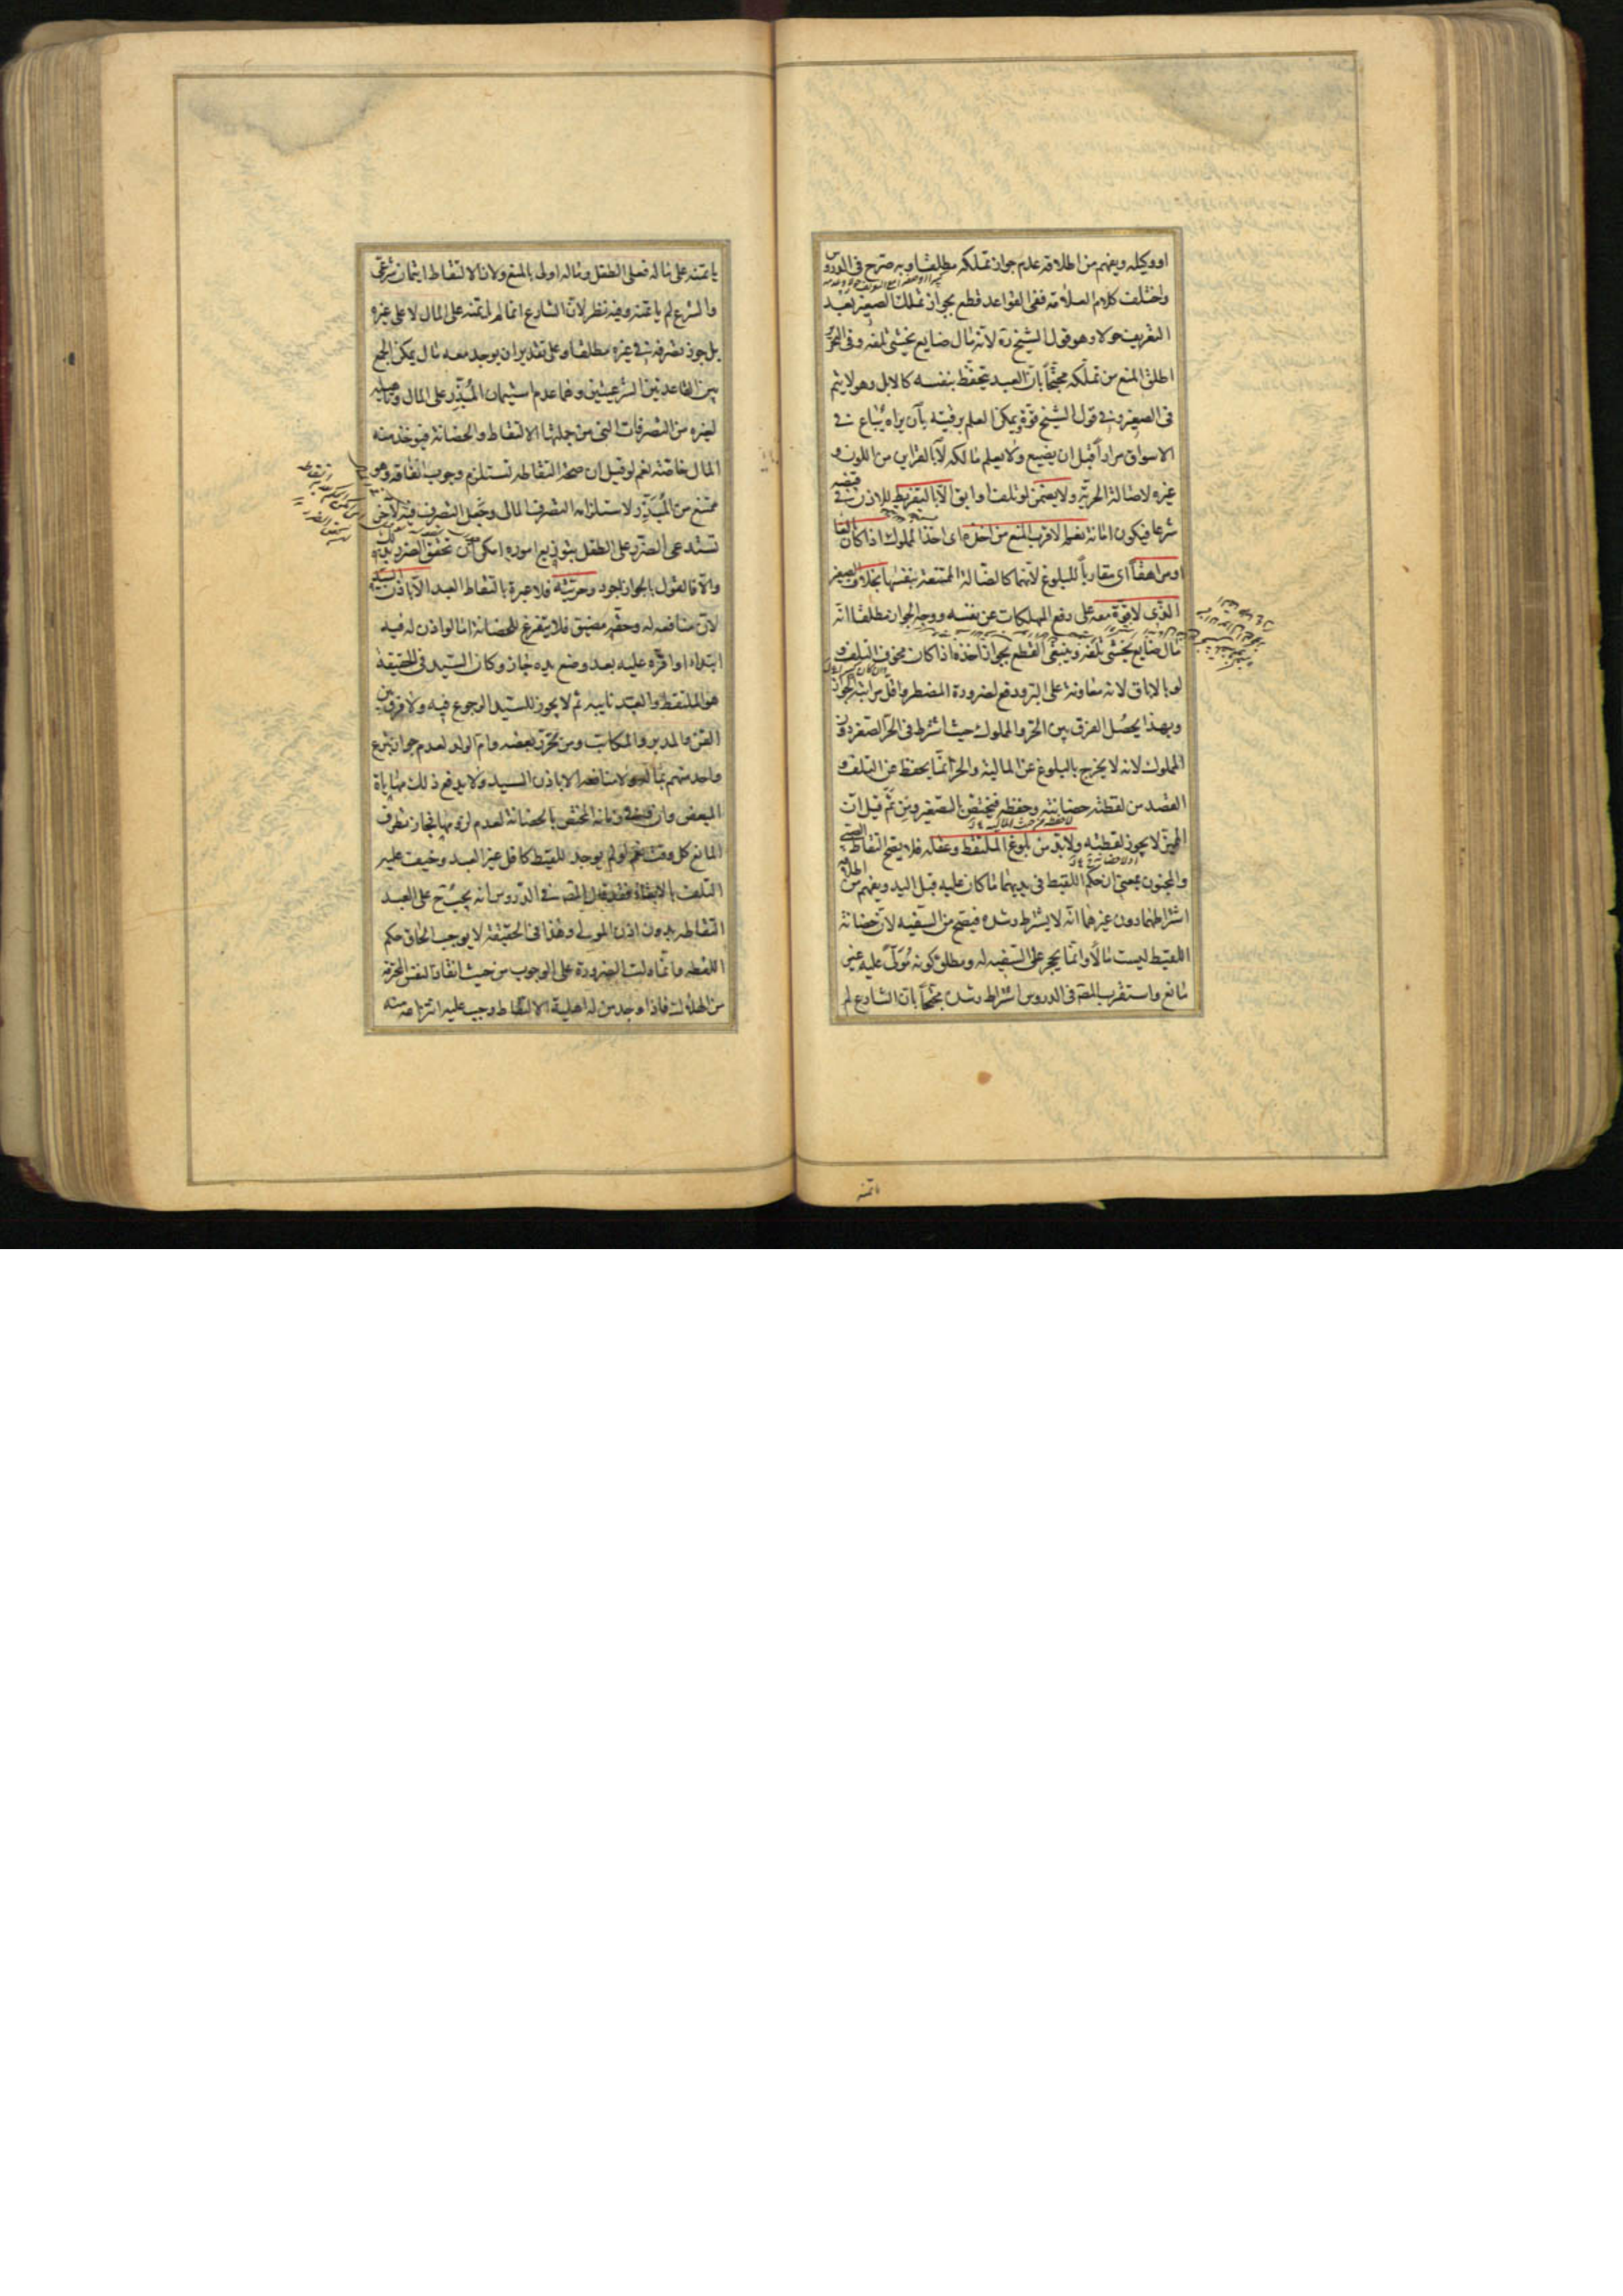 او وكيله ويفهم من اطلاقه عدم جواز تملكه مطلقا وبه صرح فى الدروس
واختلف كلام العلامة ففى القواعد قطع بجواز تملك الصغير بعد
التعريف حولا وهو قول الشيخ ره لانه مال ضايع يخشى تلفه وفى التحرير
اطلق المنع من تملكه محتجّاً بانّ العبد يتحفّظ بنفسه كالابل وهو لا يتم
فى الصغير وفى قول الشيخ قوّة ويمكن العلم برقيّته بأن يراه يُباع فى
الاسواق مراراً قبل ان يضيع ولا يعلم مالكه لا بالقراين من اللون و
غيره لاصالة الحريّة ولا يضمن لو تلف او ابق الّا بالتفريط للاذن فى قبضه
شرعا فيكون امانة نعم الاقرب المنع من اخذه اى اخذ المملوك اذا كان بالغا
او مراهقاً اى مقارباً للبلوغ لانهما كالضالة الممتنعة بنفسها بخلاف الصغير
الذى لا قوّة معه على دفع المهلكات عن نفسه ووجه الجواز مطلقا انّه
مال ضايع يخشى تلفه وينبغى القطع بجواز اخذه اذا كان مخوف التلف و
لو بالاباق لانه معاونة على البرّ ودفع لضرورة المضطر واقل مراتبه الجواز
وبهذا يحصل الفرق بين الحرّ والمملوك حيث اشترط فى الحرّ الصغر دون
المملوك لانه لا يخرج بالبلوغ عن المالية والحرّ انّما يحفظ عن التلف و
القصد من لقطته حضانته وحفظه فيختص بالصّغير ومن ثَمّ قيل انّ
المميّز لا يجوز لقطته ولا بدّ من بلوغ الملتقط وعقله فلا يصحّ التقاط الصبى
والمجنون بمعنى ان حكم اللقيط فى يديهما ما كان عليه قبل اليد ويفهم من اطلاقه
اشتراطهما دون غيرهما انّه لا يشترط رشده فيصحّ من السّفيه لانّ حضانة
اللقيط ليست مالاً وانّما يحجر على السّفيه له ومطلق كونه مُوَلّىً عليه غير
مانع واستقرب المصّ فى الدروس اشتراط رشده محتجّاً بان الشارع لم
يأتمنه
يأتمنه على ماله فعلى الطفل وماله اولى بالمنع ولان الالتقاط ايتمان شرعى
والشرع لم يأتمنه وفيه نظر لانّ الشارع انما لم يأتمنه على المال لا على غيره
بل جوز تصرفه فى غيره مطلقا وعلى تقدير ان يوجد معه مال يمكن الجمع
بين القاعدتين الشرعيتين وهما عدم استيمان المُبَذّر على المال وتأهيله
لغيره من التصرفات التى من جملتها الالتقاط والحضانة فيؤخذ منه
المال خاصّة نعم لو قيل ان صحة التقاطه تستلزم وجوب انفاقه وهو
ممتنع من المُبَذّر ولاستلزامه التصرف المالى وجَعل التصرف فيه لآخر
تستدعى الضّرر على الطّفل بتوزيع اموره امكن ان تحقق الضرر بذلك
والّا فالقول بالجواز اجود وحريّته فلا عبرة بالتقاط العبد الّا باذن السيد
لانّ منافعه له وحقّه مضيّق فلا يتفرغ للحضانة امّا لو اذن له فيه
ابتداء او اقرّه عليه بعد وضع يده جاز وكان السّيد فى الحقيقة
هو الملتقط والعبد نايبه ثم لا يجوز للسيّد الرجوع فيه ولا فرق بين
القنّ والمدبر والمكاتب ومن تحرّر بعضه وامّ الولد لعدم جواز تبرع
واحد منهم بماله ولا منافعه الا باذن السيد ولا يدفع ذلك مهاياة
المبعض وان وفى زمانه المختص بالحضانة لعدم لزومها فجاز تطرّق
المانع كل وقت نعم لو لم يوجد للقيط كافل غير العبد وخيف عليه
التلف بالابقاء فقد قال المصّ فى الدروس انه يجب ح على العبد
التقاطه بدون اذن المولى وهذا فى الحقيقة لا يوجب الحاق حكم
اللقطه وانّما دلت الضرورة على الوجوب من حيث انقاذ النفس المحترمة
من الهلاك فاذا وجد من له اهلية الالتقاط وجب عليه انتزاعه منه